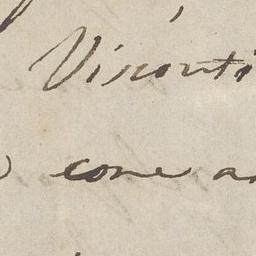 Visconti
cone a